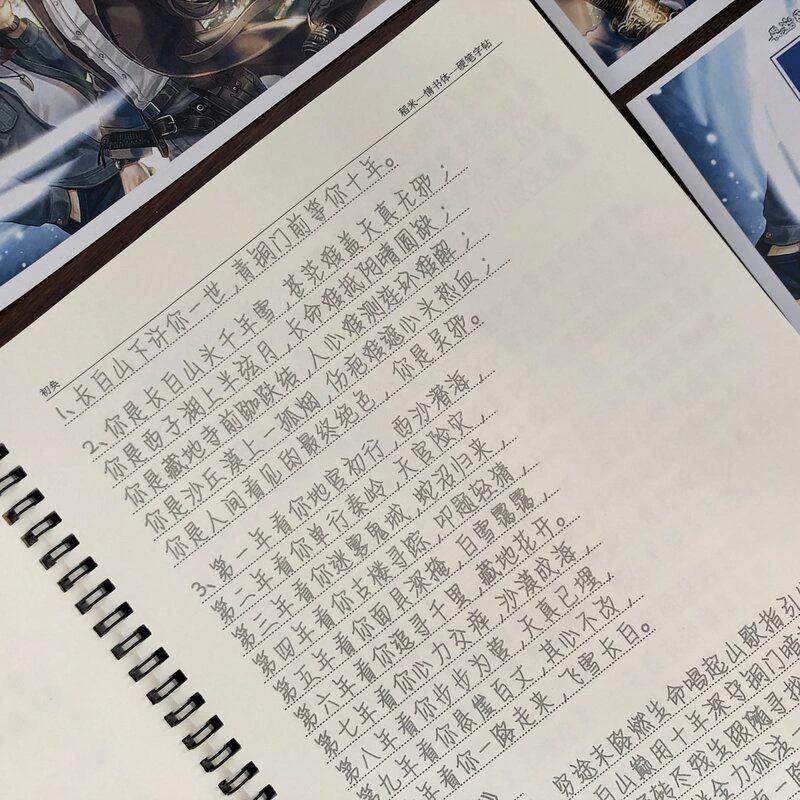 稻米一情书体一硬笔字帖
初矣
1、长白山下许你一世，青铜门前等你十年。
2、你是长白山头千年雪，苍茫难盖天真无邪；
你是西子湖上半弦月，长命难抵阴晴圆缺；
你是藏地寺前跏趺结，人心难测连环难解；
你是沙丘漠上一孤烟，伤疤难遮心头热血；
你是人间看见的最终绝色，你是吴邪。
3、第一年看你地宫初行，西沙潜海，
第二年看你单行秦岭，天宫险灾，
第三年看你迷雾鬼城，蛇沼归来，
第四年看你古楼寻踪，叩题轻猜，
第五年看你面具深掩，白雪霭霭，
第六年看你追寻千里，藏地花开。
第七年看你心力交瘁，沙漠成海，
第八年看你步步为营，天真已埋，
第九年看你悬崖百丈，其心不改，
年看你一路走来，飞雪长白。
穷途末路燃生命唱起山歌指引
白山巅用十年深守铜门暗
残生眼随寻找
金力孤注一
有一